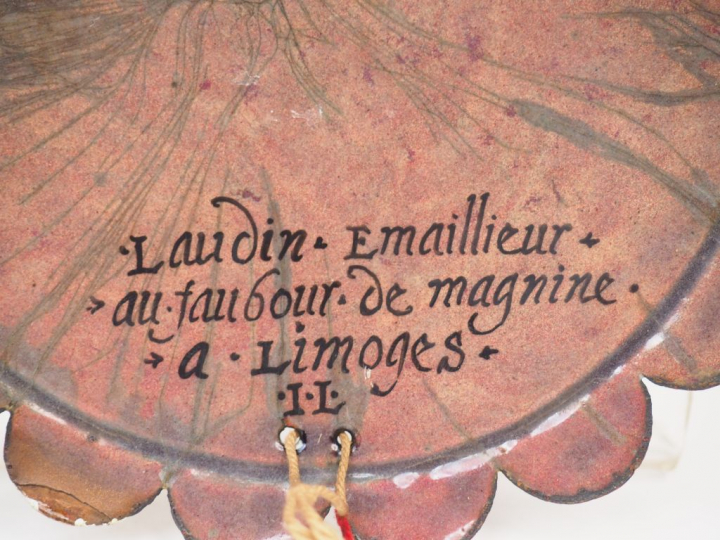 ·Laudin· Emaillieur·
au·faubour·de magnine·
a·Limoges·
·I·L·